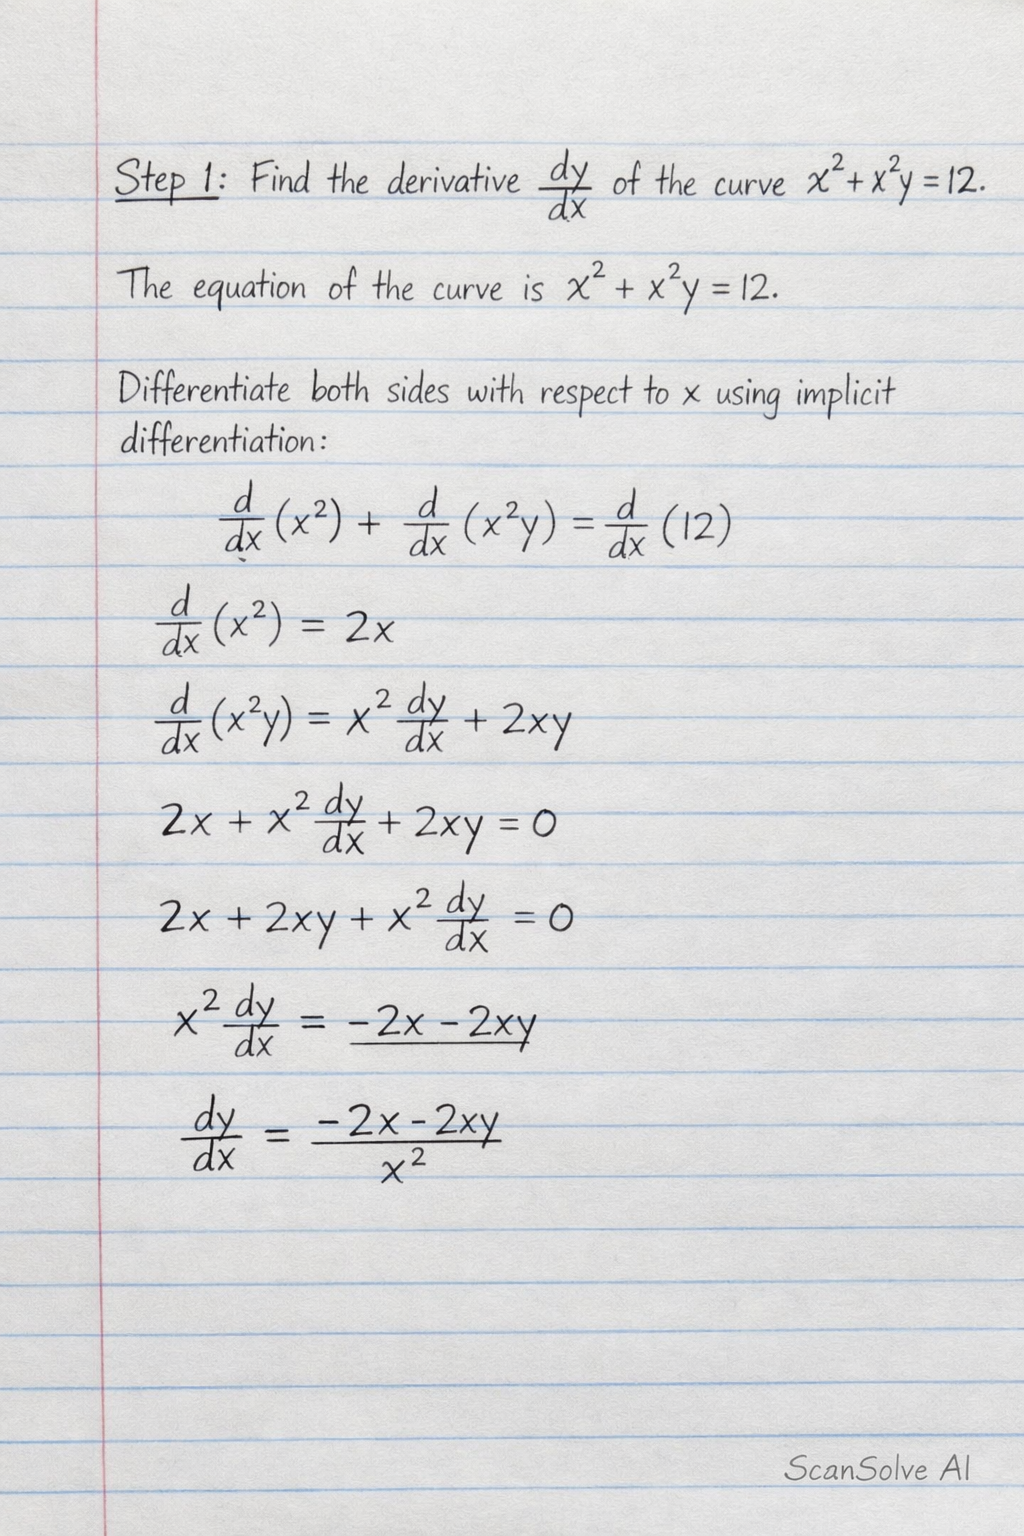 Step 1: Find the derivative dy/dx of the curve x² + x²y = 12.
The equation of the curve is x² + x²y = 12.
Differentiate both sides with respect to x using implicit
differentiation:
d/dx (x²) + d/dx (x²y) = d/dx (12)
d/dx (x²) = 2x
d/dx (x²y) = x² dy/dx + 2xy
2x + x² dy/dx + 2xy = 0
2x + 2xy + x² dy/dx = 0
x² dy/dx = -2x - 2xy
dy/dx = (-2x - 2xy)/x²
ScanSolve AI